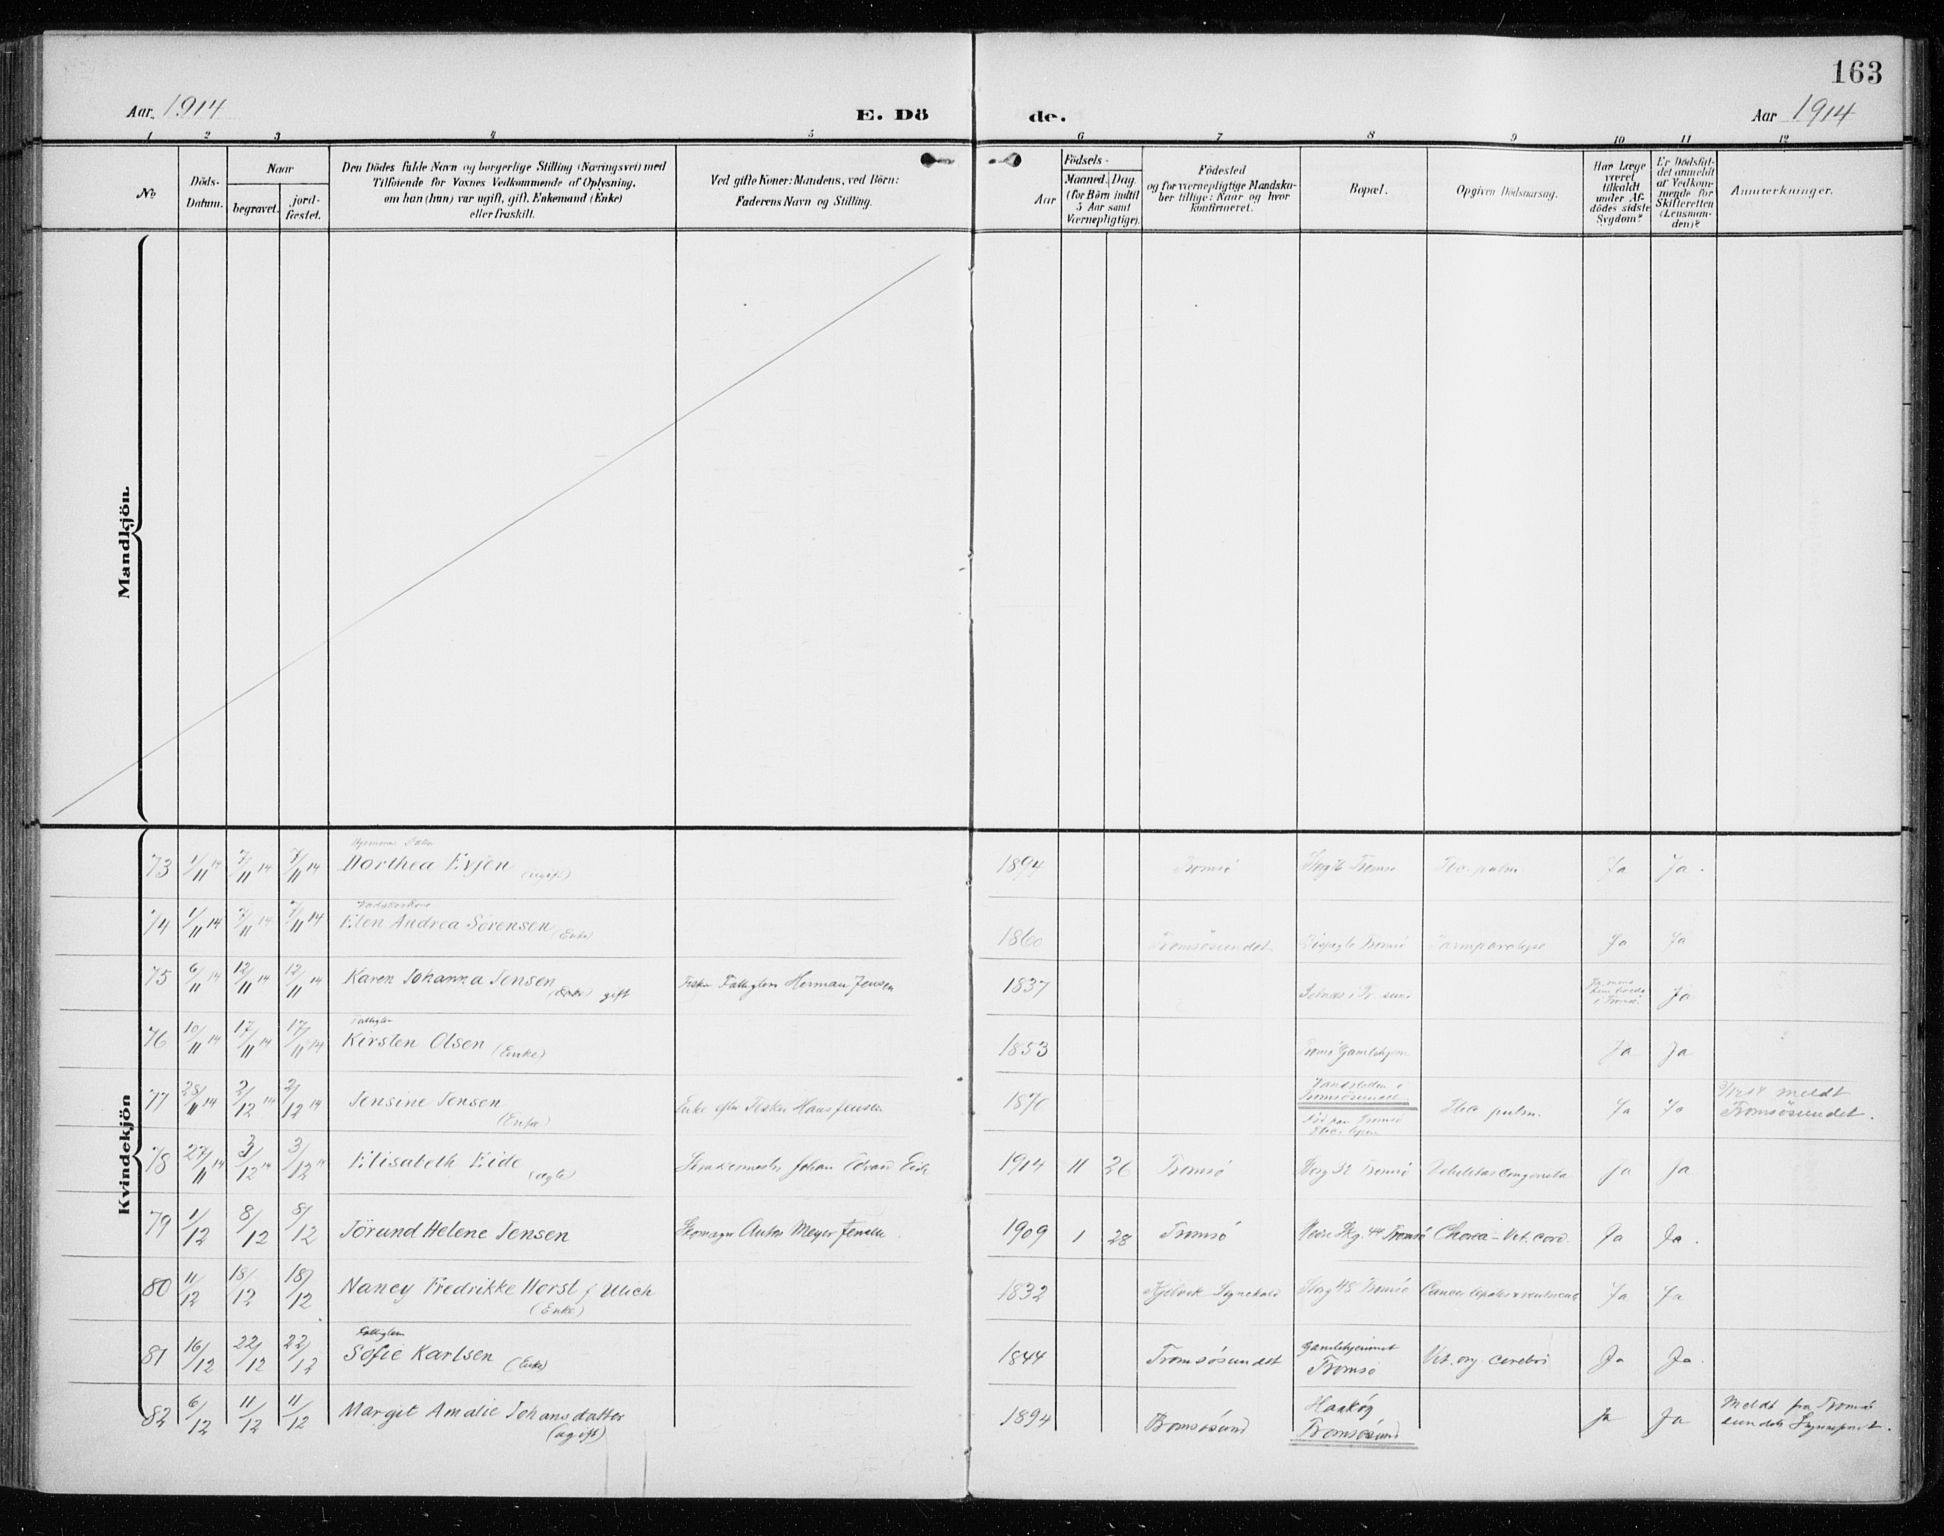 163
Aar 1914
E. Dö
de.
Aar 1914
1 2 3 4 5 6 7 8 9 10 11 12
No
Döds-
Datum.
Naar
begravet.
jord-
fæstet.
Den Dödes fulde Navn og borgerlige Stilling (Næringsvei) med
Tilföiende for Voxnes Vedkommende af Oplysning,
om han (hun) var ugift, gift, Enkemand (Enke)
eller fraskilt.
Ved gifte Koner: Mandens, ved Börn:
Faderens Navn og Stilling.
Aar
Födsels-
Maaned. Dag
(for Börn indtil
5 Aar samt
Værnepligtige).
Födested
og for værnepligtige Mandska-
ber tillige: Naar og hvor
konfirmeret.
Bopæl.
Opgiven Dödsaarsag.
Har Læge
været
tilkaldt
under Af-
dödes sidste
Sygdom?
Er Dödsfal-
det anmeldt
af Vedkom-
mende for
Skifteretten
(Lensman-
den)?
Anmerkninger.
Mandkjön.
Kvindekjön
73 1/11 14 7/11 14 7/11 14 Dorthea Evjen (ugift) 1894 Tromsö Tromsö Tbc. pulm. Ja Ja.
74 1/11 14 7/11 14 7/11 14 Elen Andrea Sörensen (Enke) 1860 Tromsösundet Tromsö Tarmparalyse Ja Ja
75 6/11 14 12/11 14 12/11 14 Karen Johanna Jensen gift Fisker Herman Jensen 1837 i Tromsö Ja
76 10/11 14 17/11 14 17/11 14 Kirsten Olsen (Enke) 1853 Gamlehjem Ja Ja
77 28/11 14 2/12 14 2/12 14 Jensine Jensen (Enke) Enke efter Fisker Hans Jensen 1870 Tromsösundet Tbc. pulm. Ja Ja meldt
Tromsösundet.
78 27/11 14 3/12 14 3/12 14 Elisabeth Eide Johan Edvard Eide 1914 11 26 Tromsö Storg 92 Tromsö Debilitas congenita Ja Ja
79 1/12 8/12 8/12 Jörund Helene Jensen Skomager Anton Meyer Jensen 1909 1 28 Tromsö Tromsö Chorea - Vit. cord. Ja Ja.
80 11/12 18/12 18/12 Nancy Fredrikke Horst f Ulich
(Enke) 1832 Storg 48 Tromsö Cancer hepatis & ventriculi Ja Ja
81 16/12 22/12 22/12 Fattiglem
Sofie Karlsen (Enke) 1844 Tromsösundet Gamlehjemmet
Tromsö Vit. org. cerebri Ja Ja.
82 6/12 11/12 11/12 Margit Amalie Johansdatter
(ugift) 1894 Tromsösund Haaköy
Tromsösund Ja Ja Meldt fra Tromsö
sundets Sogneprest.